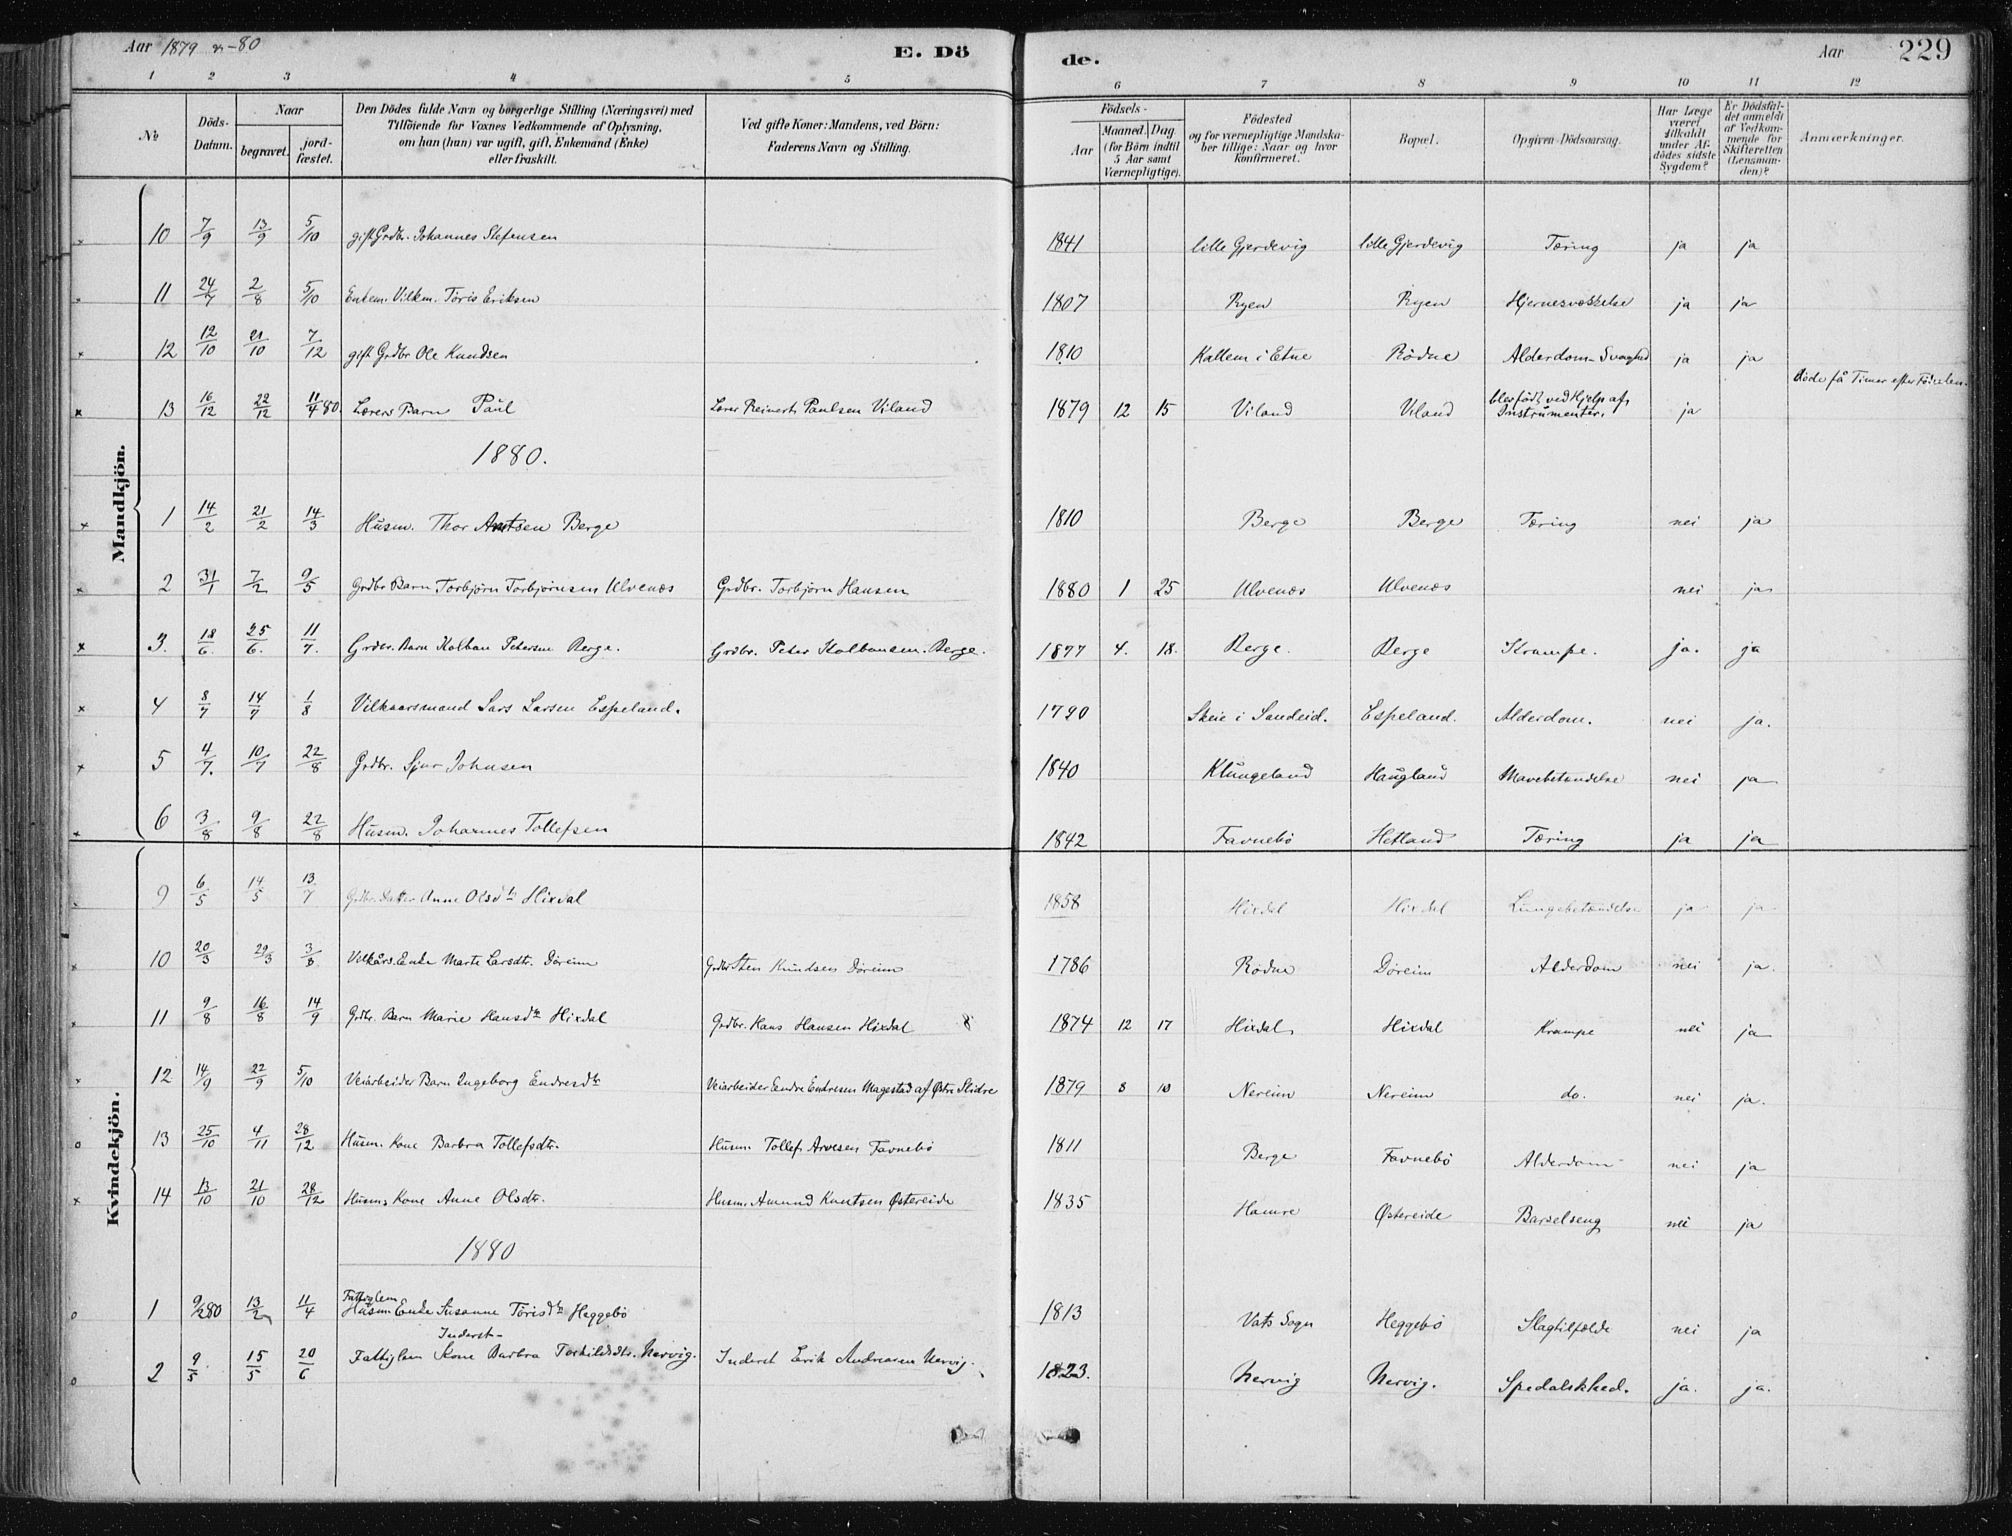 Aar 1879 n-80 E. Dö
de. Aar 229
1 2 3 4 5 6 7 8 9 10 11 12
No
Döds-Datum.
Naar begravet. jordfæstet.
Den Dödes fulde Navn og borgerlige Stilling (Næringsvei) med Tilföiende for Voxnes Vedkommende af Oplysning, om han (hun) var ugift, gift, Enkemand (Enke) eller fraskilt.
Ved gifte Koner: Mandens, ved Börn: Faderens Navn og Stilling.
Födsels-
Aar Maaned. Dag. (for Börn indtil 5 Aar samt Værnepligtige).
Födested og for værnepligtige Mandskaber tillige: Naar og hvor konfirmeret.
Bopæl.
Opgiven Dödsaarsag.
Har Læge været tilkaldt under Afdödes sidste Sygdom?
Er Dödsfaldet anmeldt af Vedkommende for Skifteretten (Lensmanden)?
Anmærkninger.
Mandkjön.
10 7/9 13/9 5/10 gift Grdbr. Johannes Stefensen 1841 lille Gjerdevig lille Gjerdevig Tæring ja ja
11 24/7 2/8 5/10 Enkem. Vilkm. Töris Eriksen 1807 Ryen Ryen Hjernesvækkelse ja ja
12 12/10 21/10 7/12 gift Grdbr Ole Knudsen 1810 Kallem i Etne Rödne Alderdom-Svaghed ja ja
13 16/12 22/12 11/4 80. Lærers Barn Paul Lærer Reinert Paulsen Viland 1879 12 15 Viland Viland blev født ved Hjelp af Instrumenter. ja döde få Timer efter Föiselen.
1880.
1 14/2 21/2 14/3 Husm. Thor Arntsen Berge 1810 Berge Berge Tæring nei ja
2 31/1 7/2 9/5 Grdbr Barn Torbjörn Torbjörnsen Ulvenæs Grdbr. Torbjörn Hansen 1880 1 25 Ulvenæs Ulvenæs nei ja
3. 18/6. 25/6. 11/7. Grdbr. Barn Kolban Petersen Berge. Grdbr. Peter Kolbansen Berge. 1877 4. 18. Berge. Berge Krampe. ja. ja
4 8/7 14/7 1/8 Vilkaarsmand Lars Larsen Espeland. 1790 Skeie i Sandeid. Espeland. Alderdom. nei ja.
5 4/7. 10/7 22/8 Grdbr. Sjur Johnsen 1840 Klungeland Haugland Mavebetændelse nei ja
6 3/8 9/8 22/8 Husm. Johannes Tollefsen 1842 Favnebö Hetland Tæring ja ja
Kvindekjön.
9 6/5 14/5 13/7 Grdbr. Datter Anne Olsdtr Hixdal 1858 Hixdal Hixdal Lungebetændelse ja ja
10 20/3 29/3 3/8 Vilkårs. Enke Marte Larsdtr. Döreim Grdbr Sten Knudsen Döreim 1786 Rödne Döreim Alderdom nei ja.
11 9/8 16/8 14/9 Grdbr. Barn Marie Hansdtr Hixdal Grdbr. Hans Hansen Hixdal 8 1874 12 17 Hixdal Hixdal Krampe nei ja
12 14/9 22/9 5/10 Veiarbeider Barn Ingeborg Endresdtr Veiarbeider Endre Endresen Magestad af Østre Slidre 1879 8 10 Nereim Nereim do. nei ja.
13 25/10 4/11 28/12 Husm. Kone Barbra Tollefsdtr. Husm. Tollef Arvesen Favnebö 1811 Berge Favnebö Alderdom nei ja
14 13/10 21/10 28/12 Husm. Kone Anne Olsdtr. Husm. Amund Knutsen Østereide 1835 Hamre Østereide Barselseng nei ja
1880
1 9/2 80 13/2 11/4 Fattiglem Husm. Enke Susanne Törisdtr Heggebö 1813 Vats Sogn Heggebö Slagtilfælde nei ja
2 9/5 15/5 20/6 Fattiglem Inderst-Kone Barbra Torkildsdtr. Nervig. Inderst Erik Andreasen Nervig. 1823. Nervig Nervig. Spedalskhed. ja. ja.